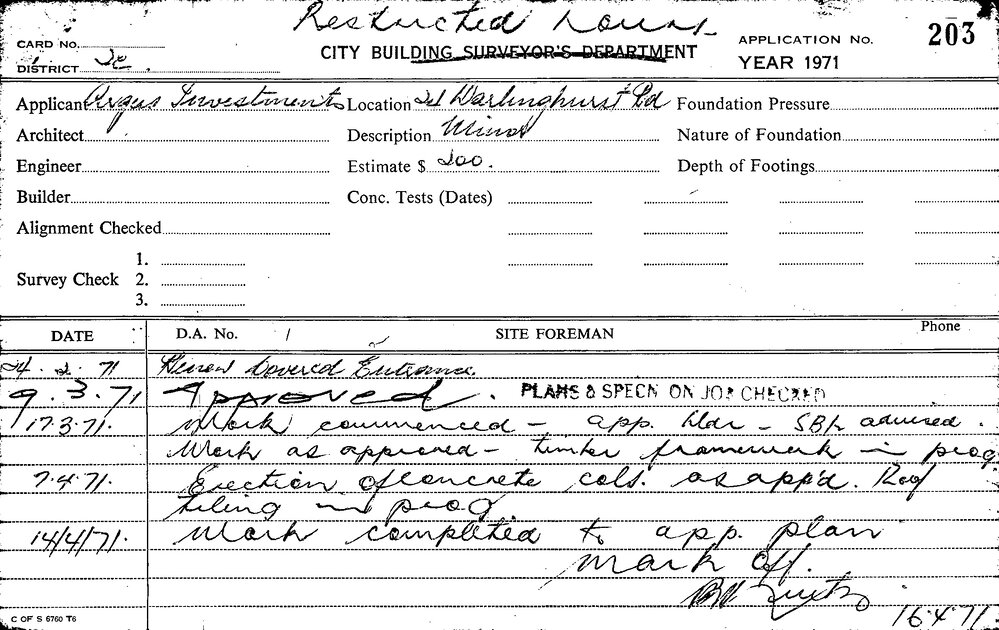 Restricted
203
CARD No.
CITY BUILDING SURVEYOR'S DEPARTMENT
APPLICATION No.
DISTRICT 2c.
YEAR 1971
Applicant Argus Investments Location Darlinghurst Rd Foundation Pressure
Architect Description Minor Nature of Foundation
Engineer Estimate $ 200. Depth of Footings
Builder Conc. Tests (Dates)
Alignment Checked
1.
Survey Check 2.
3.
DATE D.A. No. / SITE FOREMAN Phone
24.2.71 Renew Covered Entrance.
9.3.71 Approved. PLANS & SPECN ON JOB CHECKED
17.3.71. Work commenced - app. bldr - advised.
Work as approved - timber framework in prog.
7.4.71. Erection of concrete cols. as app'd. Roof
tiling in prog
14/4/71. Work completed to app. plan
mark off.
16.4.71.
C OF S 6760 T6